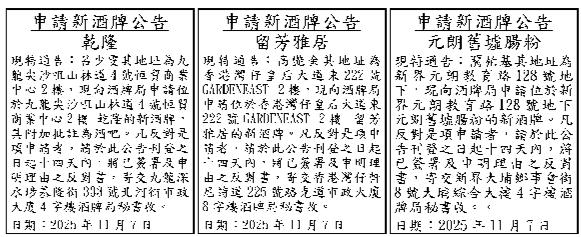 申請新酒牌公告
乾隆
現特通告：呂少雯其地址為九
龍尖沙咀山林道4號恒貿商業
中心2樓，現向酒牌局申請位
於九龍尖沙咀山林道4號恒貿
商業中心2樓 乾隆的新酒牌，
其附加批註為酒吧。凡反對是
項申請者，請於此公告刊登之
日起十四天內，將已簽署及申
明理由之反對書，寄交九龍深
水埗基隆街333號北河街市政
大廈4字樓酒牌局秘書收。
日期：2025年11月7日
申請新酒牌公告
留芳雅居
現特通告：其地址為
香港灣仔皇后大道東222號
GARDENEAST 2樓，現向酒牌局
申請位於香港灣仔皇后大道東
222號GARDENEAST 2樓 留芳
雅居的新酒牌。凡反對是項申
請者，請於此公告刊登之日起
十四天內，將已簽署及申明理
由之反對書，寄交香港灣仔軒
尼詩道225號駱克道市政大廈
8字樓酒牌局秘書收。
日期：2025年11月7日
申請新酒牌公告
元朗舊墟腸粉
現特通告：其地址為
新界元朗教育路128號地
下，現向酒牌局申請位於新
界元朗教育路128號地下
元朗舊墟腸粉的新酒牌。凡
反對是項申請者，請於此公
告刊登之日起十四天內，將
已簽署及申明理由之反對
書，寄交新界大埔鄉事會街
8號大埔綜合大樓4字樓酒
牌局秘書收。
日期：2025年11月7日